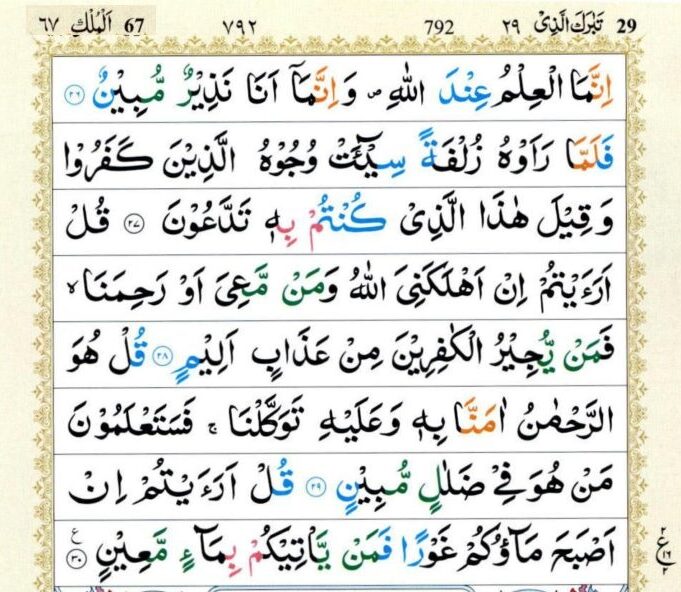 29 تَبٰرَكَ الَّذِیْ ٢٩ 792 ٧٩٢ 67 اَلْمُلْكِ ٦٧
اِنَّمَا الْعِلْمُ عِنْدَ اللّٰهِ ۪ وَاِنَّمَاۤ اَنَا نَذِیْرٌ مُّبِیْنٌ ۝٢٦
فَلَمَّا رَاَوْهُ زُلْفَةً سِیْٓـَٔتْ وُجُوْهُ الَّذِیْنَ كَفَرُوْا
وَ قِیْلَ هٰذَا الَّذِیْ كُنْتُمْ بِهٖ تَدَّعُوْنَ ۝٢٧ قُلْ
اَرَءَیْتُمْ اِنْ اَهْلَكَنِیَ اللّٰهُ وَمَنْ مَّعِیَ اَوْ رَحِمَنَا ۙ
فَمَنْ یُّجِیْرُ الْكٰفِرِیْنَ مِنْ عَذَابٍ اَلِیْمٍ ۝٢٨ قُلْ هُوَ
الرَّحْمٰنُ اٰمَنَّا بِهٖ وَعَلَیْهِ تَوَكَّلْنَا ۚ فَسَتَعْلَمُوْنَ
مَنْ هُوَ فِیْ ضَلٰلٍ مُّبِیْنٍ ۝٢٩ قُلْ اَرَءَیْتُمْ اِنْ
اَصْبَحَ مَآؤُكُمْ غَوْرًا فَمَنْ یَّاْتِیْكُمْ بِمَآءٍ مَّعِیْنٍ ۝٣٠ ع
٢
ع ١٦
٢